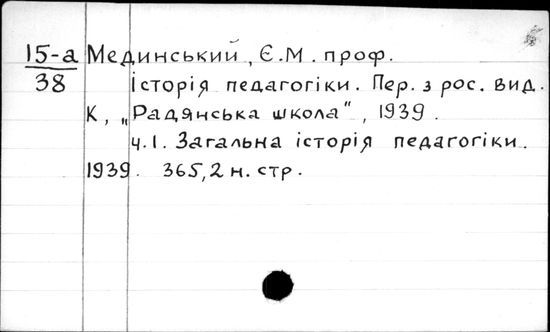 15-а Мединський, Є.М. проф.
38 історія педагогіки. Пер. з рос. вид.
К, „Радянська школа", 1939.
ч.1. Загальна історія педагогіки.
1939. 365,2 н. стр.